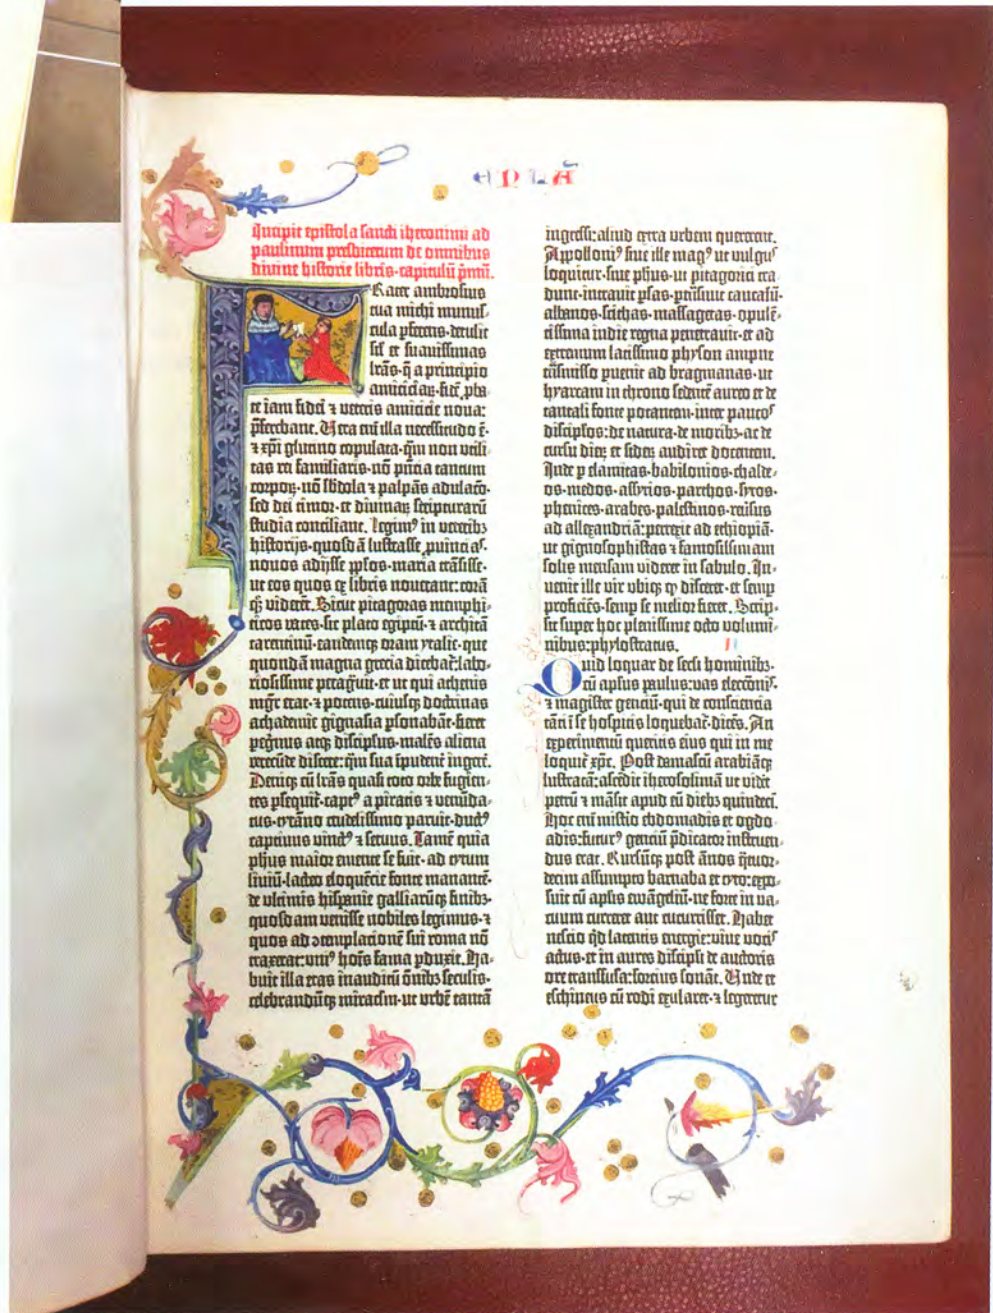 EPLÃ
Incipit epistola sancti iheronimi ad
paulinum presbiterum de omnibus
divine historie libris·capitulū pͥmū.
Frater ambrosius
tua michi munus-
cula pferens·detulit
sil et suauissimas
lrās·q̄ a principio
amiciciaꝝ·fidē pba-
te iam fidei ⁊ veteris amicicie noua:
pferebant. Vera eni illa necessitudo ē·
⁊ xpi glutino copulata·qm non vtili-
tas rei familiaris·nō pntia tantum
corpoꝝ·nō sbdola ⁊ palpās adulacō·
sed dei timor·et diuinaꝝ scripturarū
studia conciliant. Legimꝰ in veteribꝫ
historijs·quosdā lustrasse puincias·
nouos adijsse pplos·maria trāsisse·
ut eos quos ex libris nouerant: corā
qꝫ viderēt. Sicut pitagoras memphi-
ticos vates·sic plato egiptū·⁊ architā
tarentinū·eandemqꝫ oram ytalie·que
quondā magna grecia dicebat̄: labo-
riosissime peragᷓuit·et ut qui athenis
mgr̄ erat·⁊ potens·cuiusqꝫ doctrinas
achademie gignasia psonabāt·fieret
pegrinus atqꝫ discipulus·malēs aliena
verecūde discere: qm̄ sua īpudenter ingere.
Deniqꝫ cū lrās quasi toto orbe fugien-
tes psequit̄·captꝰ a piratis ⁊ venūda-
tus·tyrāno crudelissimo paruit·ductꝰ
captiuus vinctꝰ ⁊ seruus. Tamē quia
phus maior emente se fuit·ad tytum
liuiū·lacteo eloquētie fonte manantē·
de vltimis hispanie galliarūqꝫ finibꝫ·
quosdam venisse nobiles legimus·⁊
quos ad ꝯtemplacionē sui roma nō
traxerat: vniꝰ hoīs fama pduxit. Ha-
buit illa etas inauditū ōnibꝫ seculis·
celebrandūqꝫ miraclm·ut vrbē tantā
ingressi: aliud extra vrbem quererent.
Appolloniꝰ siue ille magꝰ ut vulgus
loquitur·siue phus·ut pitagorici tra-
dunt·intrauit psas·ptrāsiuit caucasū·
albanos·scithas·massagetas·opulē-
tissima indie regna penetrauit·et ad
extremum latissimo physon ampne
trāsmisso puenit ad bragmanas·ut
hyarcam in throno sedentē aureo et de
tantali fonte potantem·inter paucos
discipulos: de natura·de moribꝫ·ac de
cursu dieꝝ et sideꝝ audiret docentem.
Inde p elamitas·babilonios·chalde-
os·medos·assyrios·parthos·syros·
phenices·arabes·palestinos·reūsus
ad allexandriā: perrexit ad ethiopiā·
ut gignosophistas ⁊ famosissimam
solis mensam videret in sabulo. In-
uenit ille vir vbiqꝫ qꝫ disceret·et semp
proficiēs·semp se melior fieret. Scrip-
sit super hoc plenissime octo volumi-
nibus: phylostratus.
Quid loquar de secli hominibꝫ·
cū aplus paulus: vas eleccōnis·
⁊ magister gentiū·qui de conscientia
tāti ī se hospitis loquebat̄·dicēs. An
experimentū queritis eius qui in me
loquit̄ xpc. Post damascū arabiāqꝫ
lustratā: ascēdit iherosolimā ut videt
petrū ⁊ māsit apud eū diebꝫ quindecī.
Hoc enī misterio ebdomadis et ogdo-
adis: futurꝰ gentiū pdicator instruen-
dus erat. Rursūqꝫ post ānos q̄tuor-
decim assumpto barnaba et tyto: expo-
suit cū aplis ewāgeliū·ne forte in va-
cuum curreret aut cucurrisset. Habet
nescio qd latentis energie: viue vocis
actus·et in aures discipuli de auctoris
ore transfusa: forcius sonat. Vnde et
eschineus cū rodi exularet·⁊ legeretur